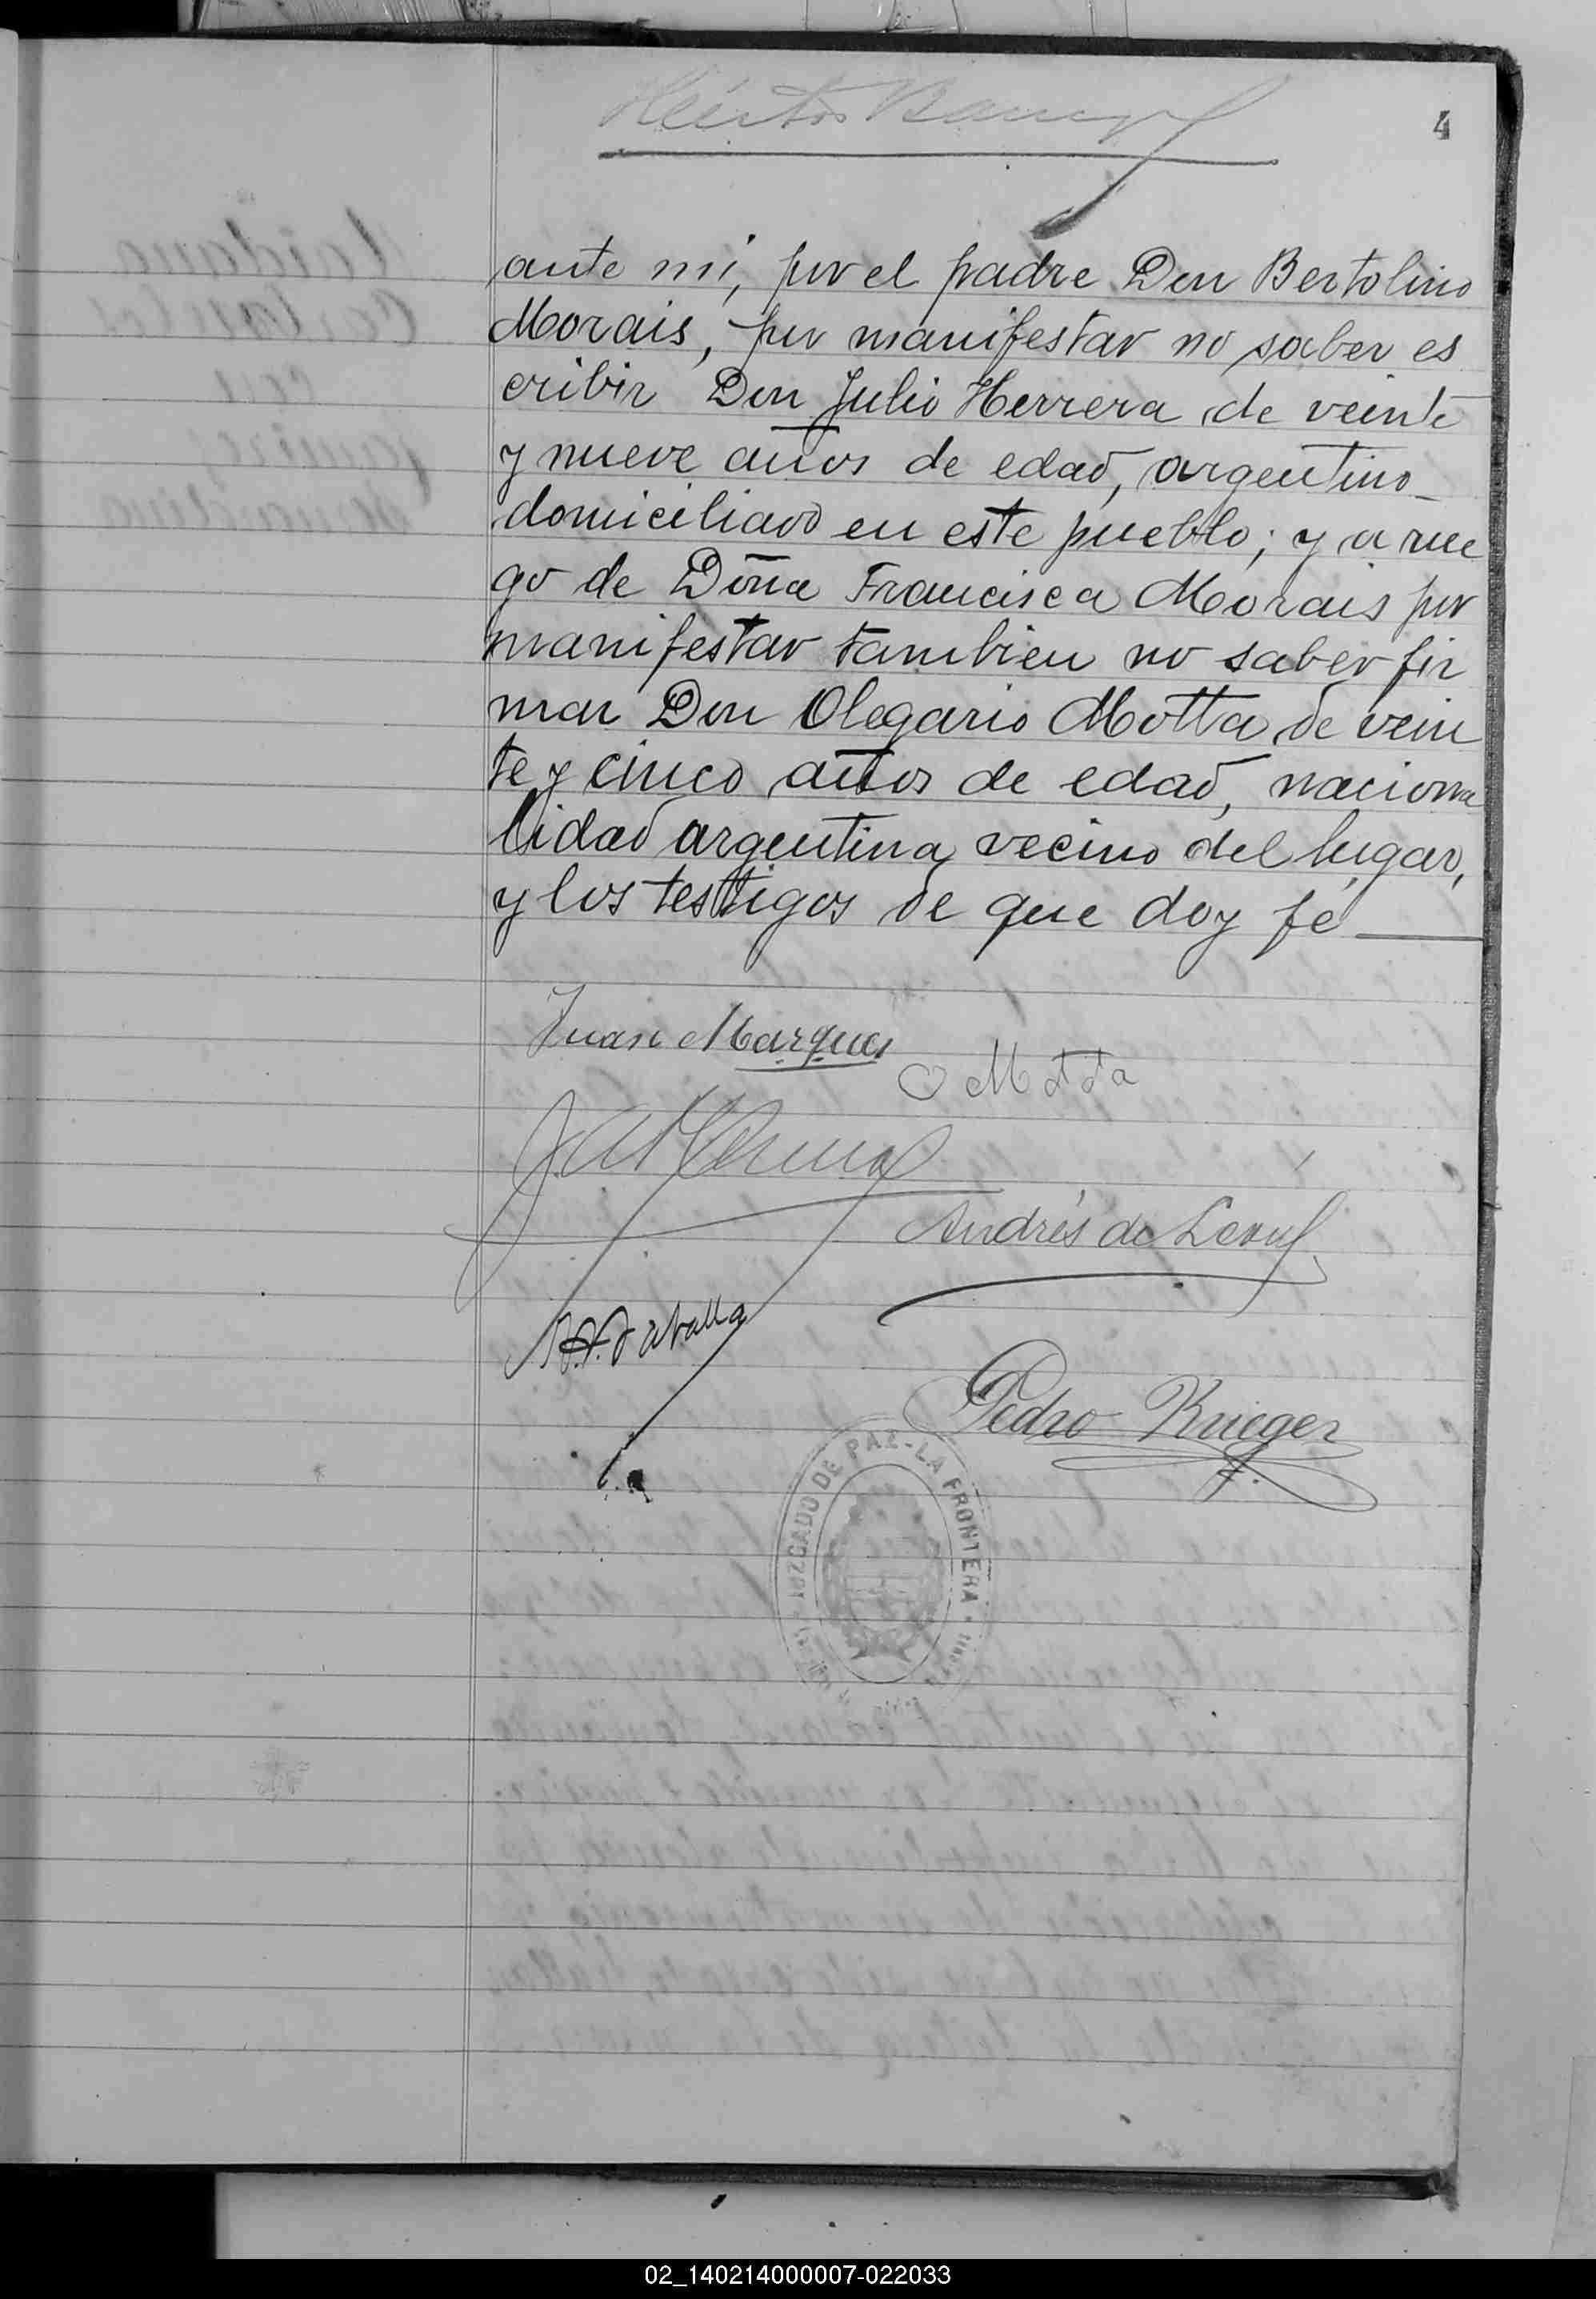 4
ante mi, por el padre Don Bertolino
Morais, por manifestar no saber es
cribir Don Julio Herrera de veinte
y nueve años de edad, argentino
domiciliado en este pueblo; y a rue
go de Doña Francisca Morais por
manifestar tambien no saber fir
mar Don Olegario Motta de vein
te y cinco años de edad, naciona
lidad argentina vecino del lugar,
y los testigos de que doy fé
Juan Marques
O Motta
Andrés de
Pedro Krieger
JUZGADO DE PAZ - LA FRONTERA
02_140214000007-022033